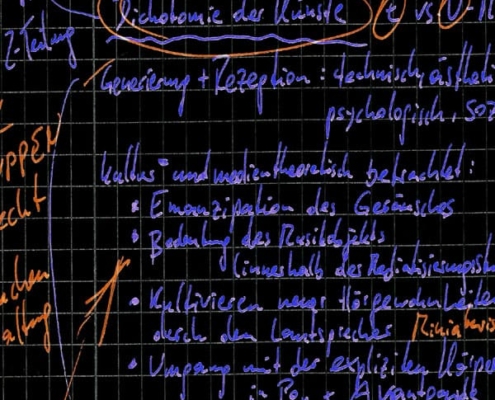 Dichotomie der Künste t vs
2-Teilung
Generierung + Rezeption: technisch, ästheti
psychologisch, soz
PPEN
echt
kultur- und medientheoretisch betrachtet:
• Emanzipation des Geräusches
• Bedeutung des Musikobjekts
(innerhalb des Medialisierungs
achen
altung
• Kultivieren neuer Hörgewohnheiten
durch den Lautsprecher Miniaturis
• Umgang mit der expliziten Körper
in Pop + Avantgarde